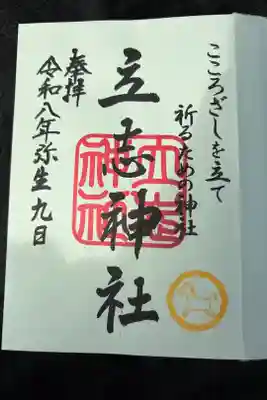 こころざしを立て
祈るための神社
立志神社
奉拝
令和八年弥生九日
立志
神社